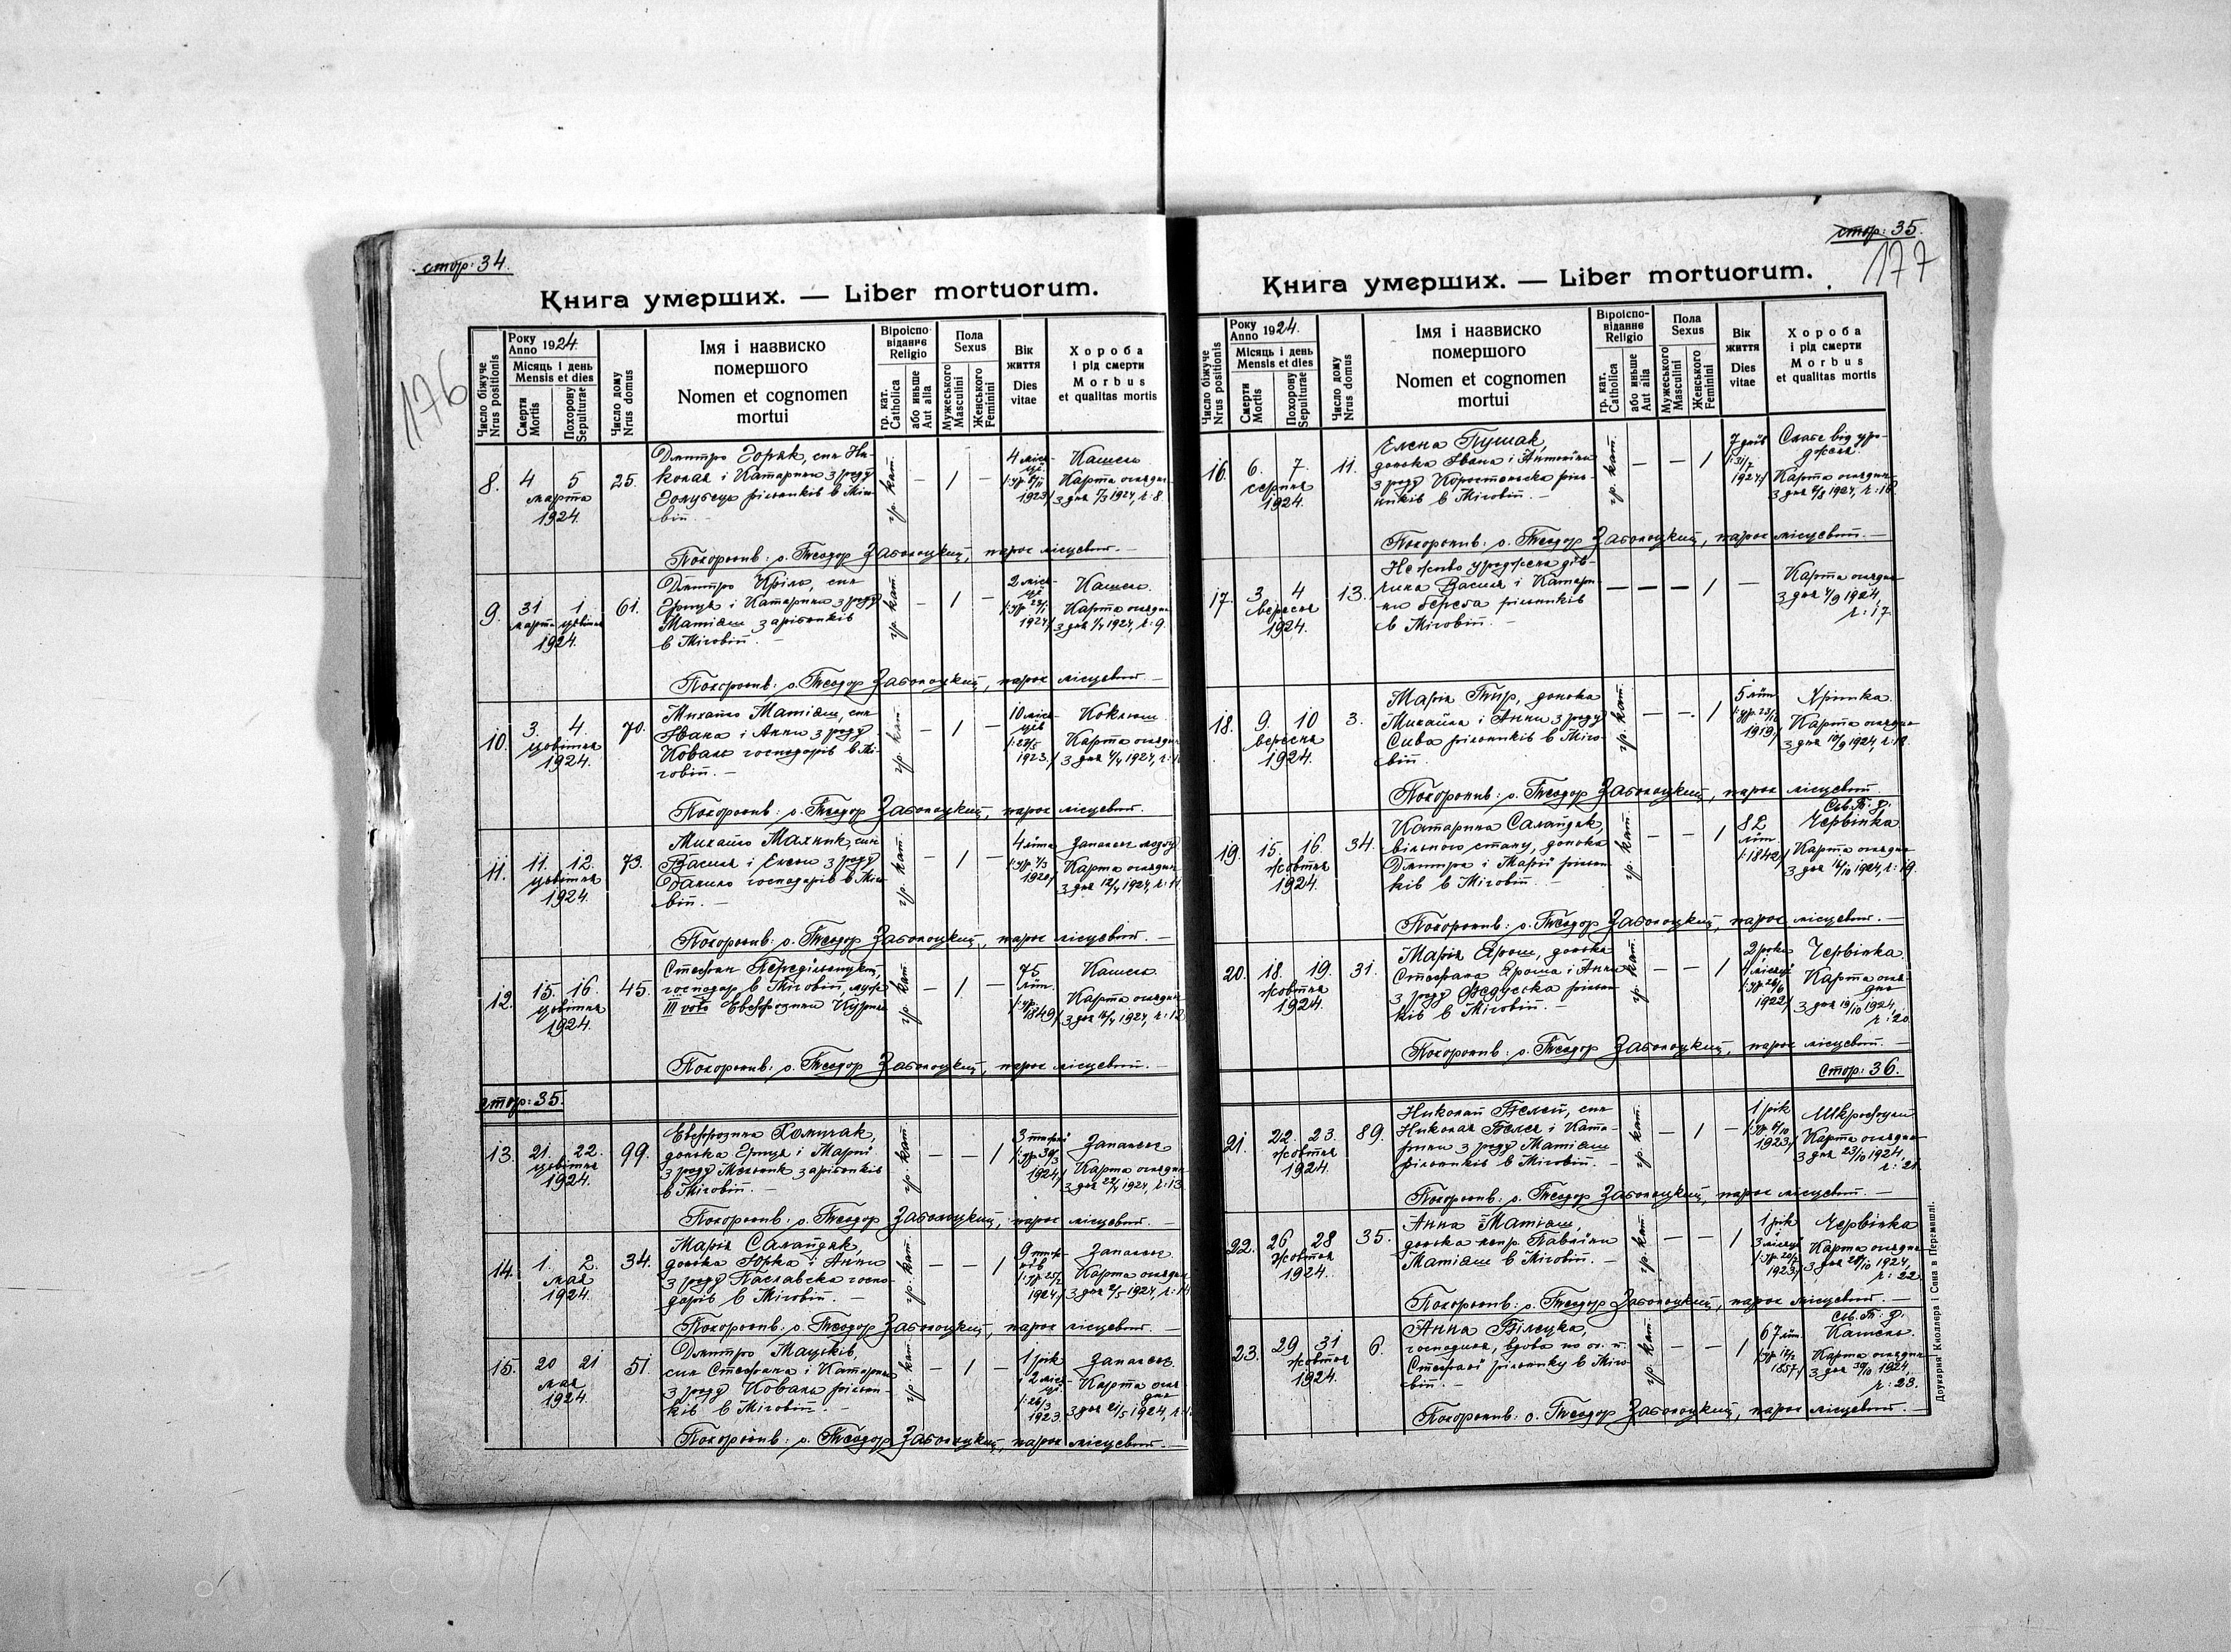 стор: 34.
176
Книга умерших. — Liber mortuorum.
Число біжуче Nrus positionis
Року Anno 1924.
Місяць і день Mensis et dies
Смерти Mortis
Похорону Sepulturae
Число дому Nrus domus
Імя і назвиско
помершого
Nomen et cognomen
mortui
Віроісповіданнє Religio
гр. кат. Catholica
або иньше Aut alia
Пола Sexus
Мужеського Masculini
Женського Feminini
Вік життя Dies vitae
Хороба
і рід смерти
Morbus
et qualitas mortis
8. 4 5 марта 1924. 25.
Дмитро Горак, син Ни-
колая і Катарини з роду
рільників в Міго-
віп. —
гр. кат. — 1 —
1923
Кашель
Карта оглядин
з дня 1924, ч: 8
Похоронив: о. Теодор Заболоцкий, парох місцевий. —
9. 31 марта 1. цвітня 1924. 61.
Дмитро Кріль, син
Гриця і Катарини з роду
Матіаш зарібників
в Міговіп. —
гр. кат. — 1 —
1924
Кашель.
Карта оглядин
з дня 1924, ч: 9.
Похоронив: о. Теодор Заболоцкий, парох місцевий. —
10. 3. 4. цвітня 1924. 70.
Михайло Матіаш, син
Івана і Анни з роду
Коваль господарів в Мі-
говіп. —
гр. кат. — 1 —
10 міся-
ців
1923.
Коклюш.
Карта оглядин
з дня 1924,
Похоронив: о. Теодор Заболоцкий, парох місцевий.
11. 11. 12. цвітня 1924. 73.
Михайло Махник, син
Василя і Елени з роду
Данило господарів в Міго-
віп. —
гр. кат. — 1 —
4 літа
1920
Запалень мозку
Карта оглядин
з дня 1924, ч: 11
Похоронив: о. Теодор Заболоцкий, парох місцевий. —
12. 15. 16. цвітня 1924. 45.
Стефан
господар в Міговіп, муж
III voto Евфрозини
гр. кат. — 1 —
75
літ.
1849
Кашель
Карта оглядин
з дня 1924, ч: 12
Похоронив: о. Теодор Заболоцкий, парох місцевий. —
стор: 35.
13. 21. 22. цвітня 1924. 99.
Евфрозина Хомичак,
донька Гриця і Марії
з роду Мельник зарібників
в Міговіп. —
гр. кат. — — 1
1924
Запалень
Карта оглядин
з дня 1924, ч: 13
Похоронив: о. Теодор Заболоцкий, парох місцевий. —
14. 1. 2. мая 1924. 34.
Марія Салайдяк,
донька Юрка і Анни
з роду Паславска госпо-
дарів в Міговіп. —
гр. кат. — — 1
1924
Запалень
Карта оглядин
з дня 1924, ч: 14
Похоронив: о. Теодор Заболоцкий, парох місцевий. —
15. 20 21 мая 1924. 51.
Дмитро Мацьків,
син Стефана і Катарини
з роду Коваль рільни-
ків в Міговіп. —
гр. кат. — 1 —
1 рік
і 2 міся-
ці
1923.
Запалень
Карта огля-
дин
з дня 1924,
Похоронив: о. Теодор Заболоцкий, парох місцевий. —
стор: 35.
177
Книга умерших. — Liber mortuorum.
Число біжуче Nrus positionis
Року Anno 1924.
Місяць і день Mensis et dies
Смерти Mortis
Похорону Sepulturae
Число дому Nrus domus
Імя і назвиско
помершого
Nomen et cognomen
mortui
Віроісповіданнє Religio
гр. кат. Catholica
або иньше Aut alia
Пола Sexus
Мужеського Masculini
Женського Feminini
Вік життя Dies vitae
Хороба
і рід смерти
Morbus
et qualitas mortis
16. 6. 7. серпня 1924. 11.
Елена Пушак,
донька Івана і Антоніни
з роду Коростенська ріль-
ників в Міговіп. —
гр. кат. — — 1
7 днів
1924
Слабе від уро-
дженя.
Карта оглядин
з дня 1924, ч: 16
Похоронив: о. Теодор Заболоцкий, парох місцевий. —
17. 3. 4 вересня 1924. 13.
Неживо уроджена дів-
чина Василя і Катари-
ни Береза рільників
в Міговіп. —
— — — 1 —
Карта оглядин
з дня 4/9 1924,
ч: 17
18. 9. 10 вересня 1924. 3.
Марія Тир, донька
Михайла і Анни з роду
Сива рільників в Міго-
віп.
гр. кат. — — 1
5 літ
1919
Хрипка.
Карта оглядин
з дня 10/9 1924, ч: 18.
Похоронив: о. Теодор Заболоцкий, парох місцевий.
19. 15. 16. жовтня 1924. 34.
Катарина Салайдяк,
вільного стану, донька
Дмитра і Марії рільни-
ків в Міговіп. —
гр. кат. — — 1
82
літ
1842
Червінка.
Карта оглядин
з дня 1924, ч: 19.
Похоронив: о. Теодор Заболоцкий, парох місцевий. —
20. 18. 19. жовтня 1924. 31.
Марія Ярош, донька
Стефана Яроша і Анни
з роду Федуска рільни-
ків в Міговіп. —
гр. кат. — — 1
2 роки
4 місяці
1922
Червінка.
Карта огля-
дин
з дня 19/10 1924,
ч: 20.
Похоронив: о. Теодор Заболоцкий, парох місцевий. —
Стор: 36.
21. 22. 23. жовтня 1924. 89.
Николай Белей, син
Николая Белея і Ката-
рини з роду Матіаш
рільників в Міговіп. —
гр. кат. — 1 —
1 рік
1923
Шкрофули
Карта оглядин
з дня 23/10 1924,
ч: 21.
Похоронив: о. Теодор Заболоцкий, парох місцевий. —
22. 26 28 жовтня 1924. 35.
Анна Матіаш,
донька непр. Павліни
Матіаш в Міговіп. —
гр. кат. — — 1
1 рік
3 місяці
1923
Червінка
Карта оглядин
з дня 28/10 1924,
ч: 22.
Похоронив: о. Теодор Заболоцкий, парох місцевий. —
23. 29 31 жовтня 1924. 6.
Анна Білецка,
господиня, вдова по
Стефані рільнику в Міго-
віп. —
гр. кат. — — 1
67 літ
1857
Кашель.
Карта оглядин
з дня 30/10 1924,
ч: 23.
Похоронив: о. Теодор Заболоцкий, парох місцевий. —
Друкарня Кноллера і Сина в Перемишлі.